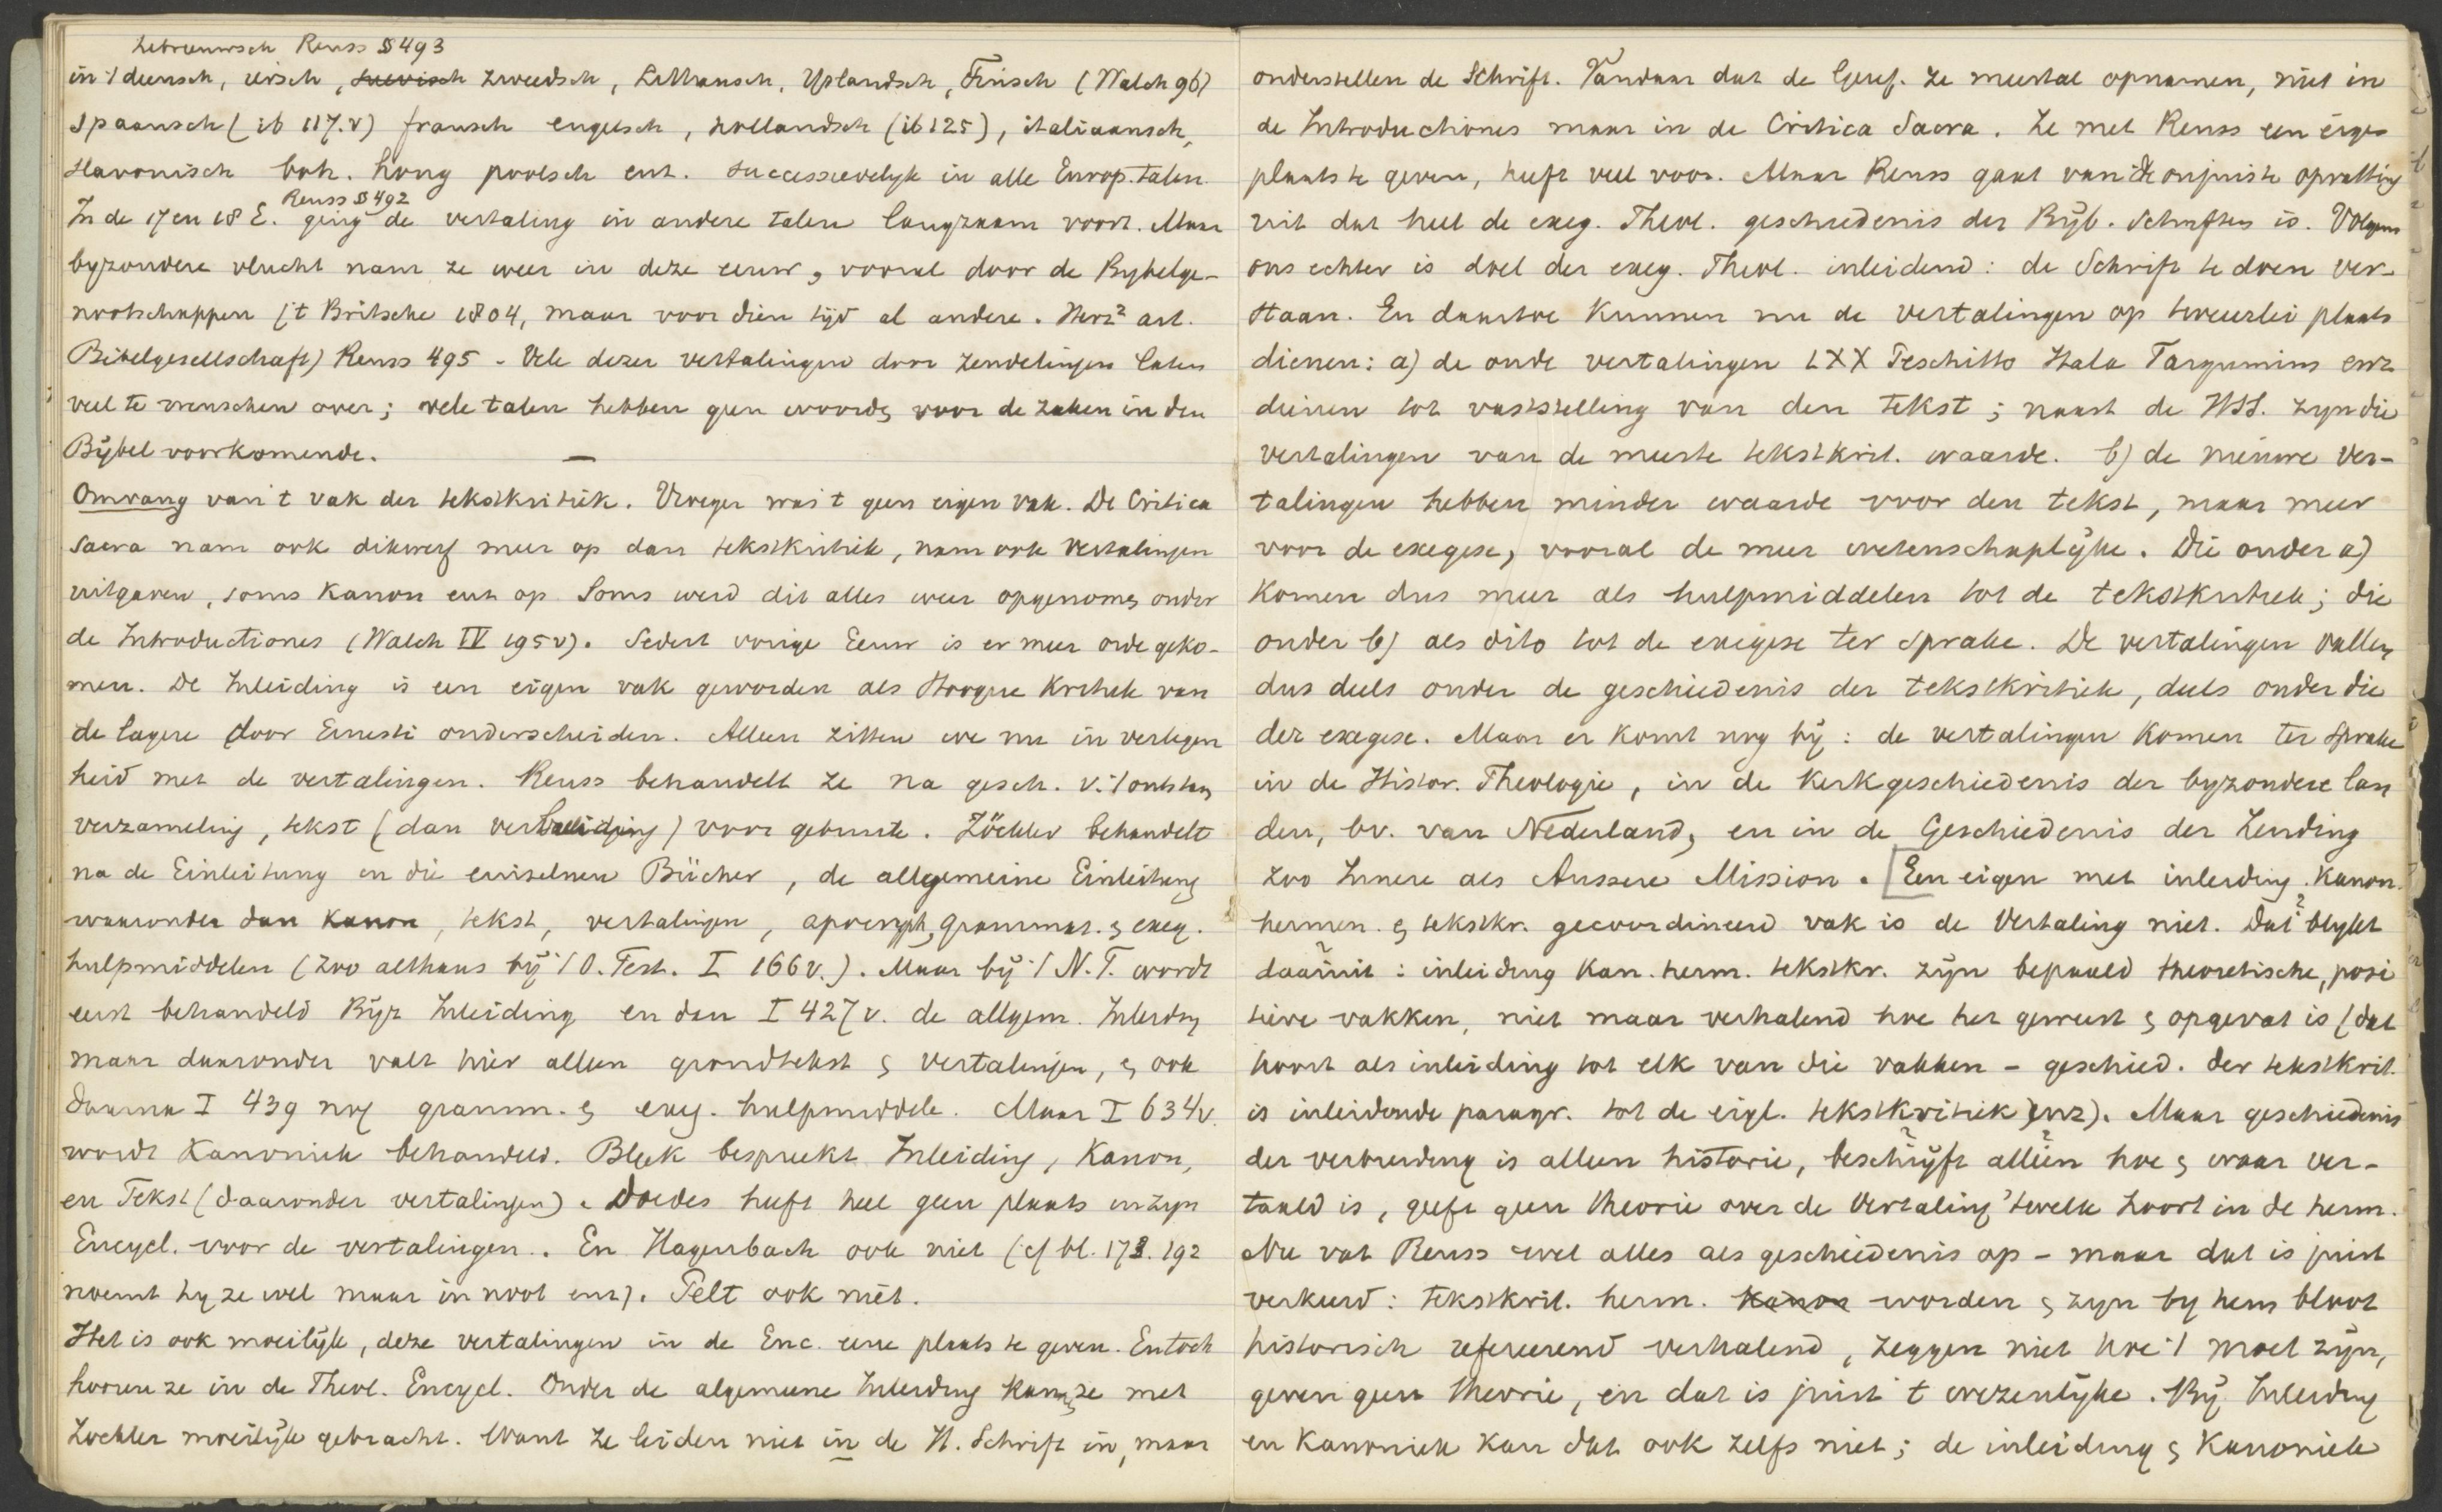 hebreeuwsch Reuss § 493
in 't deensch, iersch, suevisch zweedsch, Litthausch, Yslandsch, Finisch (Walch 96)
Spaansch (ib 117.v) fransch engelsch, hollandsch (ib 125), italiaansch,
slavonisch boh. hong poolsch enz. successievelyk in alle Europ. talen.
Reuss § 492
In de 17 en 18 E. ging de vertaling in andere talen langzaam voort. Maar
byzondere vlucht nam ze weer in deze eeuw, vooral door de Bybelge-
nootschappen ('t Britsche 1804, maar voor dien tijd al andere. Herz² art.
Bibelgesellschaft) Reuss 495 - Vele dezer vertalingen door zendelingen laten
veel te wenschen over; vele talen hebben geen woorden voor de zaken in den
Bijbel voorkomende. —
Omvang van 't vak der tekstkritiek. Vroeger was 't geen eigen vak. De Critica
Sacra nam ook dikwerf meer op dan tekstkritiek, nam ook vertalingen
uitgaven, soms Kanon enz op. Soms werd dit alles weer opgenomen onder
de Introductiones (Walch IV 195v). Sedert vorige Eeuw is er meer orde geko-
men. De Inleiding is een eigen vak geworden als Hoogere Kritiek van
de lagere door Ernesti onderscheiden. Alleen zitten we nu in verlegen
heid met de vertalingen. Reuss behandelt ze na gesch. v. 't ontstaan
verzameling, tekst (dan verbreiding) voor gebruik. Zöckler behandelt
na de Einleitung in die einzelnen Bücher, de allgemeine Einleitung
waaronder dan Kanon, tekst, vertalingen, apocryph, grammat. en exeg.
hulpmiddelen (zoo althans bij 't O. Test. I 166v.). Maar bij 't N.T. wordt
eerst behandeld Bijz Inleiding en dan I 427v. de allgem. Inleiding
maar daaronder valt hier alleen grondtekst en vertalingen, en ook
daarna I 439 nog gramm. en exeg. hulpmiddele. Maar I 634v.
wordt Kanoniek behandeld. Bleek bespreekt Inleiding, Kanon,
en Tekst (daaronder vertalingen). Doedes heeft heel geen plaats in zyn
Encycl. voor de vertalingen. En Hagenbach ook niet (cf bl. 178. 192
noemt hy ze wel maar in noot enz). Pelt ook niet.
Het is ook moeilijk, deze vertalingen in de Enc. eene plaats te geven. En toch
hooren ze in de Theol. Encycl. Onder de algemeene Inleiding kunnen ze met
Zockler moeilijk gebracht. Want ze leiden niet in de H. Schrift in, maar
onderstellen de Schrift. Vandaar dat de Geref. ze meestal opnamen, niet in
de Introductiones maar in de Critica Sacra. Ze met Reuss een eigen
plaats te geven, heeft veel voor. Maar Reuss gaat van de onjuiste opvatting
uit dat heel de exeg. Theol. geschiedenis der Bijb. Schriften is. Volgens
ons echter is doel der exeg. Theol. inleidend: de Schrift te doen ver-
staan. En daartoe kunnen nu de vertalingen op tweeerlei plaats
dienen: a) de oude vertalingen LXX Peschitto Itala Targumim enz
dienen tot vaststelling van den tekst; naast de HSS. zyn die
vertalingen van de meeste tekstkrit. waarde. b) de nieuwe ver-
talingen hebben minder waarde voor den tekst, maar meer
voor de exegese, vooral de meer wetenschaplijke. Die onder a)
komen dus meer als hulpmiddelen tot de tekstkritiek; die
onder b) als dito tot de exegese ter sprake. De vertalingen vallen
dus deels onder de geschiedenis der tekstkritiek, deels onder die
der exegese. Maar er komt nog bij: de vertalingen komen ter sprake
in de Histor. Theologie, in de Kerkgeschiedenis der byzondere lan
den, bv. van Nederland, en in de Geschiedenis der Zending
zoo Innere als Aussere Mission. [Een eigen met inleiding. Kanon.
hermen. en tekstkr. gecoordineerd vak is de Vertaling niet. Dat blykt
daaruit: inleiding kan. herm. tekstkr. zijn bepaald theoretische, posi
tieve vakken, niet maar verhalend hoe het geweest en opgevat is (dat
hoort als inleiding tot elk van die vakken - geschied. der tekstkrit.
is inleidende paragr. tot de eigl. tekstkritiek enz). Maar geschiedenis
der verbreiding is alleen historie, beschrijft alleen hoe en waar ver-
taald is, geeft geen theorie over de vertaling 'twelk hoort in de herm.
Nu vat Reuss wel alles als geschiedenis op - maar dat is juist
verkeerd: tekstkrit. herm. Kanon worden en zyn by hem bloot
historisch refereerend verhalend, zeggen niet hoe 't moet zijn,
geven geen theorie, en dat is juist 't wezenlijke. Bij Inleiding
en Kanoniek kan dat ook zelfs niet; de inleiding en Kanoniek